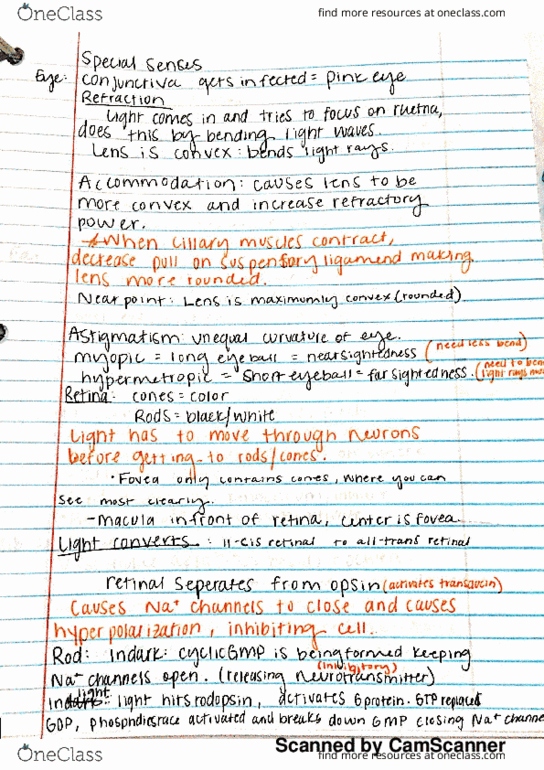 OneClass
find more resources at oneclass.com
Special Senses
Eye: conjunctiva gets infected = pink eye
Refraction
Light comes in and tries to focus on ruetna,
does this by bending light waves.
Lens is convex: bends light rays.
Accommodation: causes lens to be
more convex and increase refractory
power.
*When cillary muscles contract,
decrease pull on suspensory ligamend making
lens more rounded.
Near point: Lens is maximumly convex (rounded)
Astigmatism: unequal curvature of eye.
myopic = long eyeball = nearsightedness (need less bend)
hypermetropic = short eyeball = far sightedness. (need to bend
light rays
Retina: cones = color
Rods = black/white
Light has to move through neurons
before getting to rods/cones.
• Fovea only contains cones, where you can
see most clearly.
- Macula infront of retina, center is fovea.
Light converts: 11-cis retinal to all-trans retinal
retinal seperates from opsin (activates transducin)
Causes Na+ channels to close and causes
hyperpolarization, inhibiting cell.
Rod: Indark: cyclicGMP is being formed keeping
Na+ channels open. (releasing (inhibitory) neurotransmitter)
In light: light hits rodopsin, activates Gprotein. GTP replaced
GDP, phosphdiesrace activated and breaks down GMP closing Na+ channe
Scanned by CamScanner
OneClass
find more resources at oneclass.com